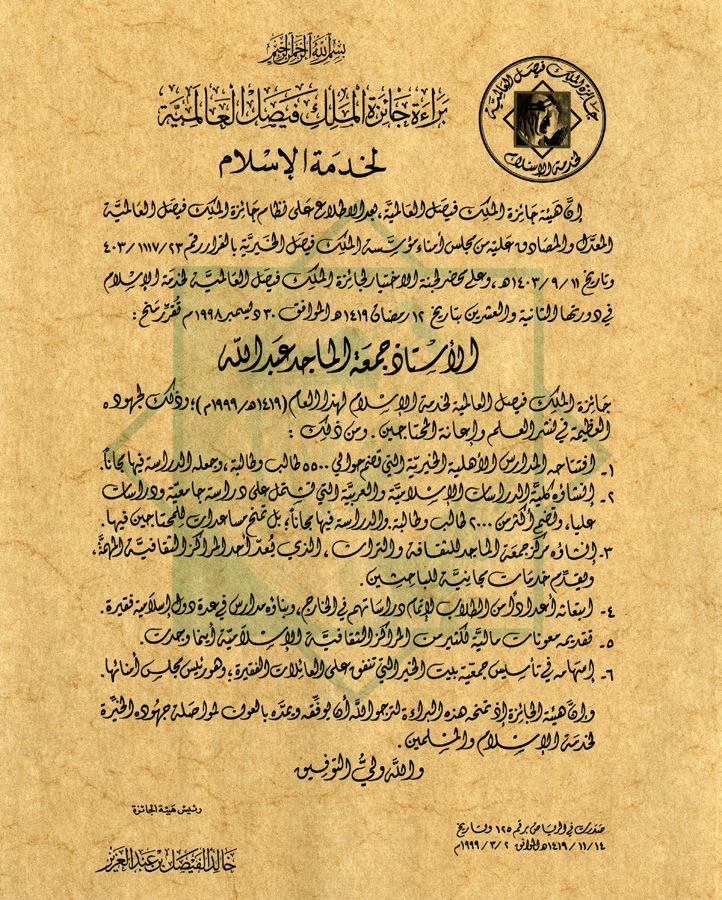 بسم الله الرحمن الرحيم
براءة جائزة الملك فيصل العالمية
لخدمة الإسلام
جائزة الملك فيصل العالمية
لخدمة الإسلام
إنَّ هيئة جائزة الملك فيصل العالمية، بعد الاطلاع على نظام جائزة الملك فيصل العالمية
المعدل والمصادق عليه من مجلس أمناء مؤسسة الملك فيصل الخيرية بالقرار رقم ٤٠٣/١١١٧/٢٣
وتاريخ ١٤٠٣/٩/١١هـ، وعلى محضر لجنة الاختيار لجائزة الملك فيصل العالمية لخدمة الإسلام
في دورتها الثانية والعشرين بتاريخ ١٢ رمضان ١٤١٩هـ الموافق ٣٠ ديسمبر ١٩٩٨م تُقرِّر منح:
الأستاذ جمعة الماجد عبدالله
جائزة الملك فيصل العالمية لخدمة الإسلام لهذا العام (١٤١٩هـ/١٩٩٩م)؛ وذلك لجهوده
العظيمة في نشر العلم وإعانة المحتاجين. ومن ذلك:
١- افتتاحه المدارس الأهلية الخيرية التي تضم حوالي ٥٥٠٠ طالب وطالبة، وجعله الدراسة فيها مجاناً.
٢- إنشاؤه كلية الدراسات الإسلامية والعربية التي تشتمل على دراسة جامعية ودراسات
عليا، وتضم أكثر من ٢٠٠٠ طالب وطالبة. والدراسة فيها مجاناً؛ بل تمنح مساعدات للمحتاجين فيها.
٣- إنشاؤه مركز جمعة الماجد للثقافة والتراث، الذي يُعدّ أحد المراكز الثقافية المهمَّة،
ويقدّم خدمات مجانية للباحثين.
٤- ابتعاثه أعداداً من الطلاب لإتمام دراساتهم في الخارج، وبناؤه مدارس في عدة دول إسلامية فقيرة.
٥- تقديمه معونات مالية لكثير من المراكز الثقافية الإسلامية أينما وجدت.
٦- إسهامه في تأسيس جمعية بيت الخير التي تنفق على العائلات الفقيرة؛ وهو رئيس مجلس أمنائها.
وإنَّ هيئة الجائزة إذ تمنحه هذه البراءة لترجو الله أن يوفّقه ويمدّه بالعون لمواصلة جهوده الخيِّرة
لخدمة الإسلام والمسلمين.
والله وليُّ التوفيق
رئيس هيئة الجائزة
خالد الفيصل بن عبدالعزيز
صدرت في الرياض برقم ١٢٥ وتاريخ
١٤١٩/١١/١٤هـ الموافق ١٩٩٩/٣/٢م